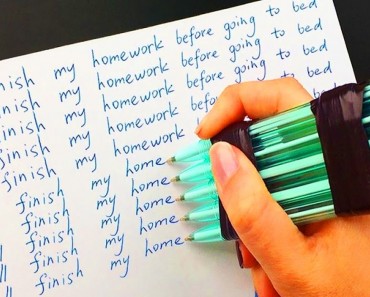 nish my homework before going to bed
inish my homework before going to bed
finish my homework before going to bed
finish my homework before to bed
finish my homework
finish my home
finish my home
finish my home
finish my home
finish my home